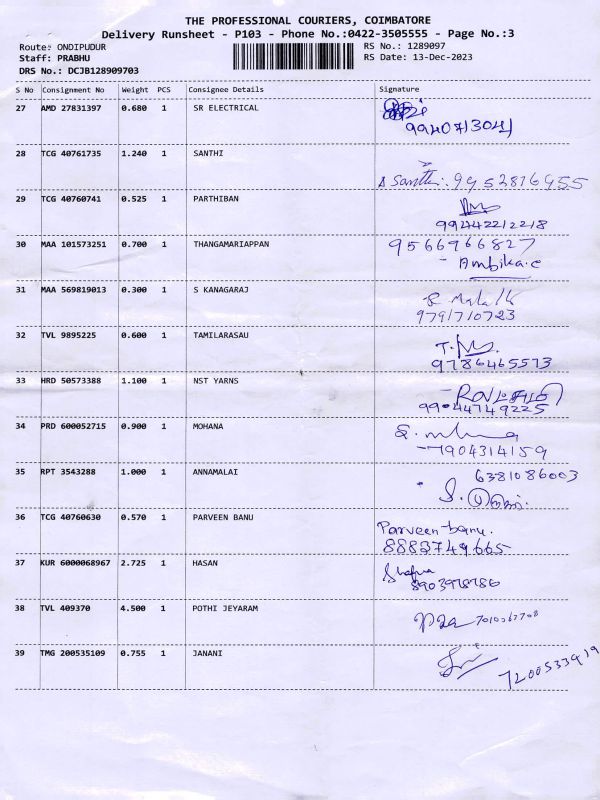 THE PROFESSIONAL COURIERS, COIMBATORE
Delivery Runsheet - P103 - Phone No.:0422-3505555 - Page No.:3
Route: ONDIPUDUR
RS No.: 1289097
Staff: PRABHU
RS Date: 13-Dec-2023
DRS No.: DCJB128909703
S No Consignment No Weight PCS Consignee Details Signature
27 AMD 27831397 0.680 1 SR ELECTRICAL
9940713041
28 TCG 40761735 1.240 1 SANTHI
A Santhi: 9952816955
29 TCG 40760741 0.525 1 PARTHIBAN
99442212218
30 MAA 101573251 0.700 1 THANGAMARIAPPAN 9566966827
- Ambika.c
31 MAA 569819013 0.300 1 S KANAGARAJ
9791710723
32 TVL 9895225 0.600 1 TAMILARASAU
9786465573
33 HRD 50573388 1.100 1 NST YARNS
34 PRD 600052715 0.900 1 MOHANA
7904314159
35 RPT 3543288 1.000 1 ANNAMALAI 6381086003
36 TCG 40760630 0.570 1 PARVEEN BANU Parveen banu.
8883749665
37 KUR 6000068967 2.725 1 HASAN
8903978786
38 TVL 409370 4.500 1 POTHI JEYARAM
39 TMG 200535109 0.755 1 JANANI
7200533919